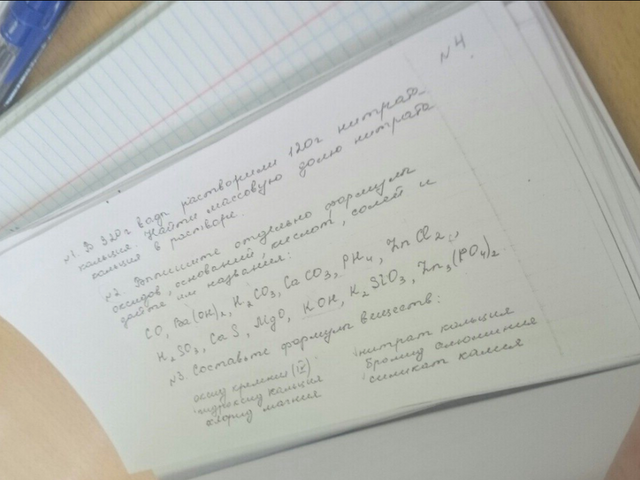 №4
№1. В 320г воды растворили 120г нитрата
кальция. Найти массовую долю нитрата
кальция в растворе.
№2. Выпишите отдельно формулы
оксидов, оснований, кислот, солей и
дайте им названия:
CO, Ba(OH)2, K2CO3, CaCO3, PH4, ZnCl2,
H2SO3, CaS, MgO, KOH, K2SiO3, Zn3(PO4)2.
№3. Составьте формулы веществ:
оксид кремния (IV) нитрат кальция
гидроксид кальция бромид алюминия
хлорид магния силикат калия